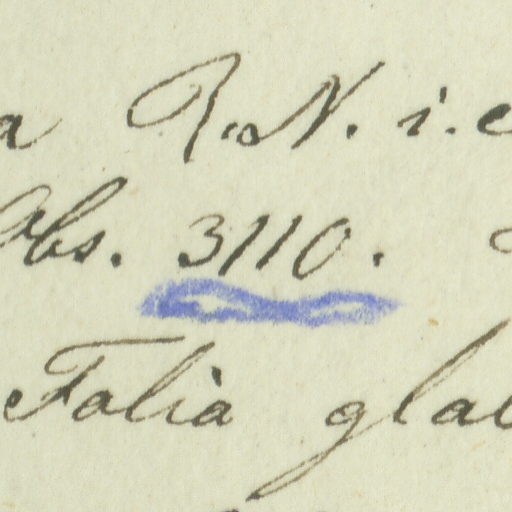 a R. N. i. e
Abs. 3110.
Folia gla